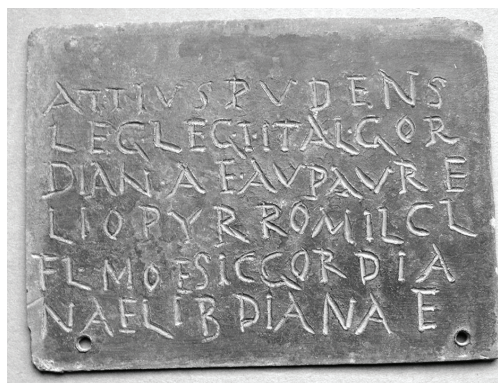 ATTIVS PVDENS
LEGLEG·I·ITAL·GOR
DIANAE·AVPAVRE
LIOPYRROMILCL
FLMOESICGORDIA
NAELIBDIANAE